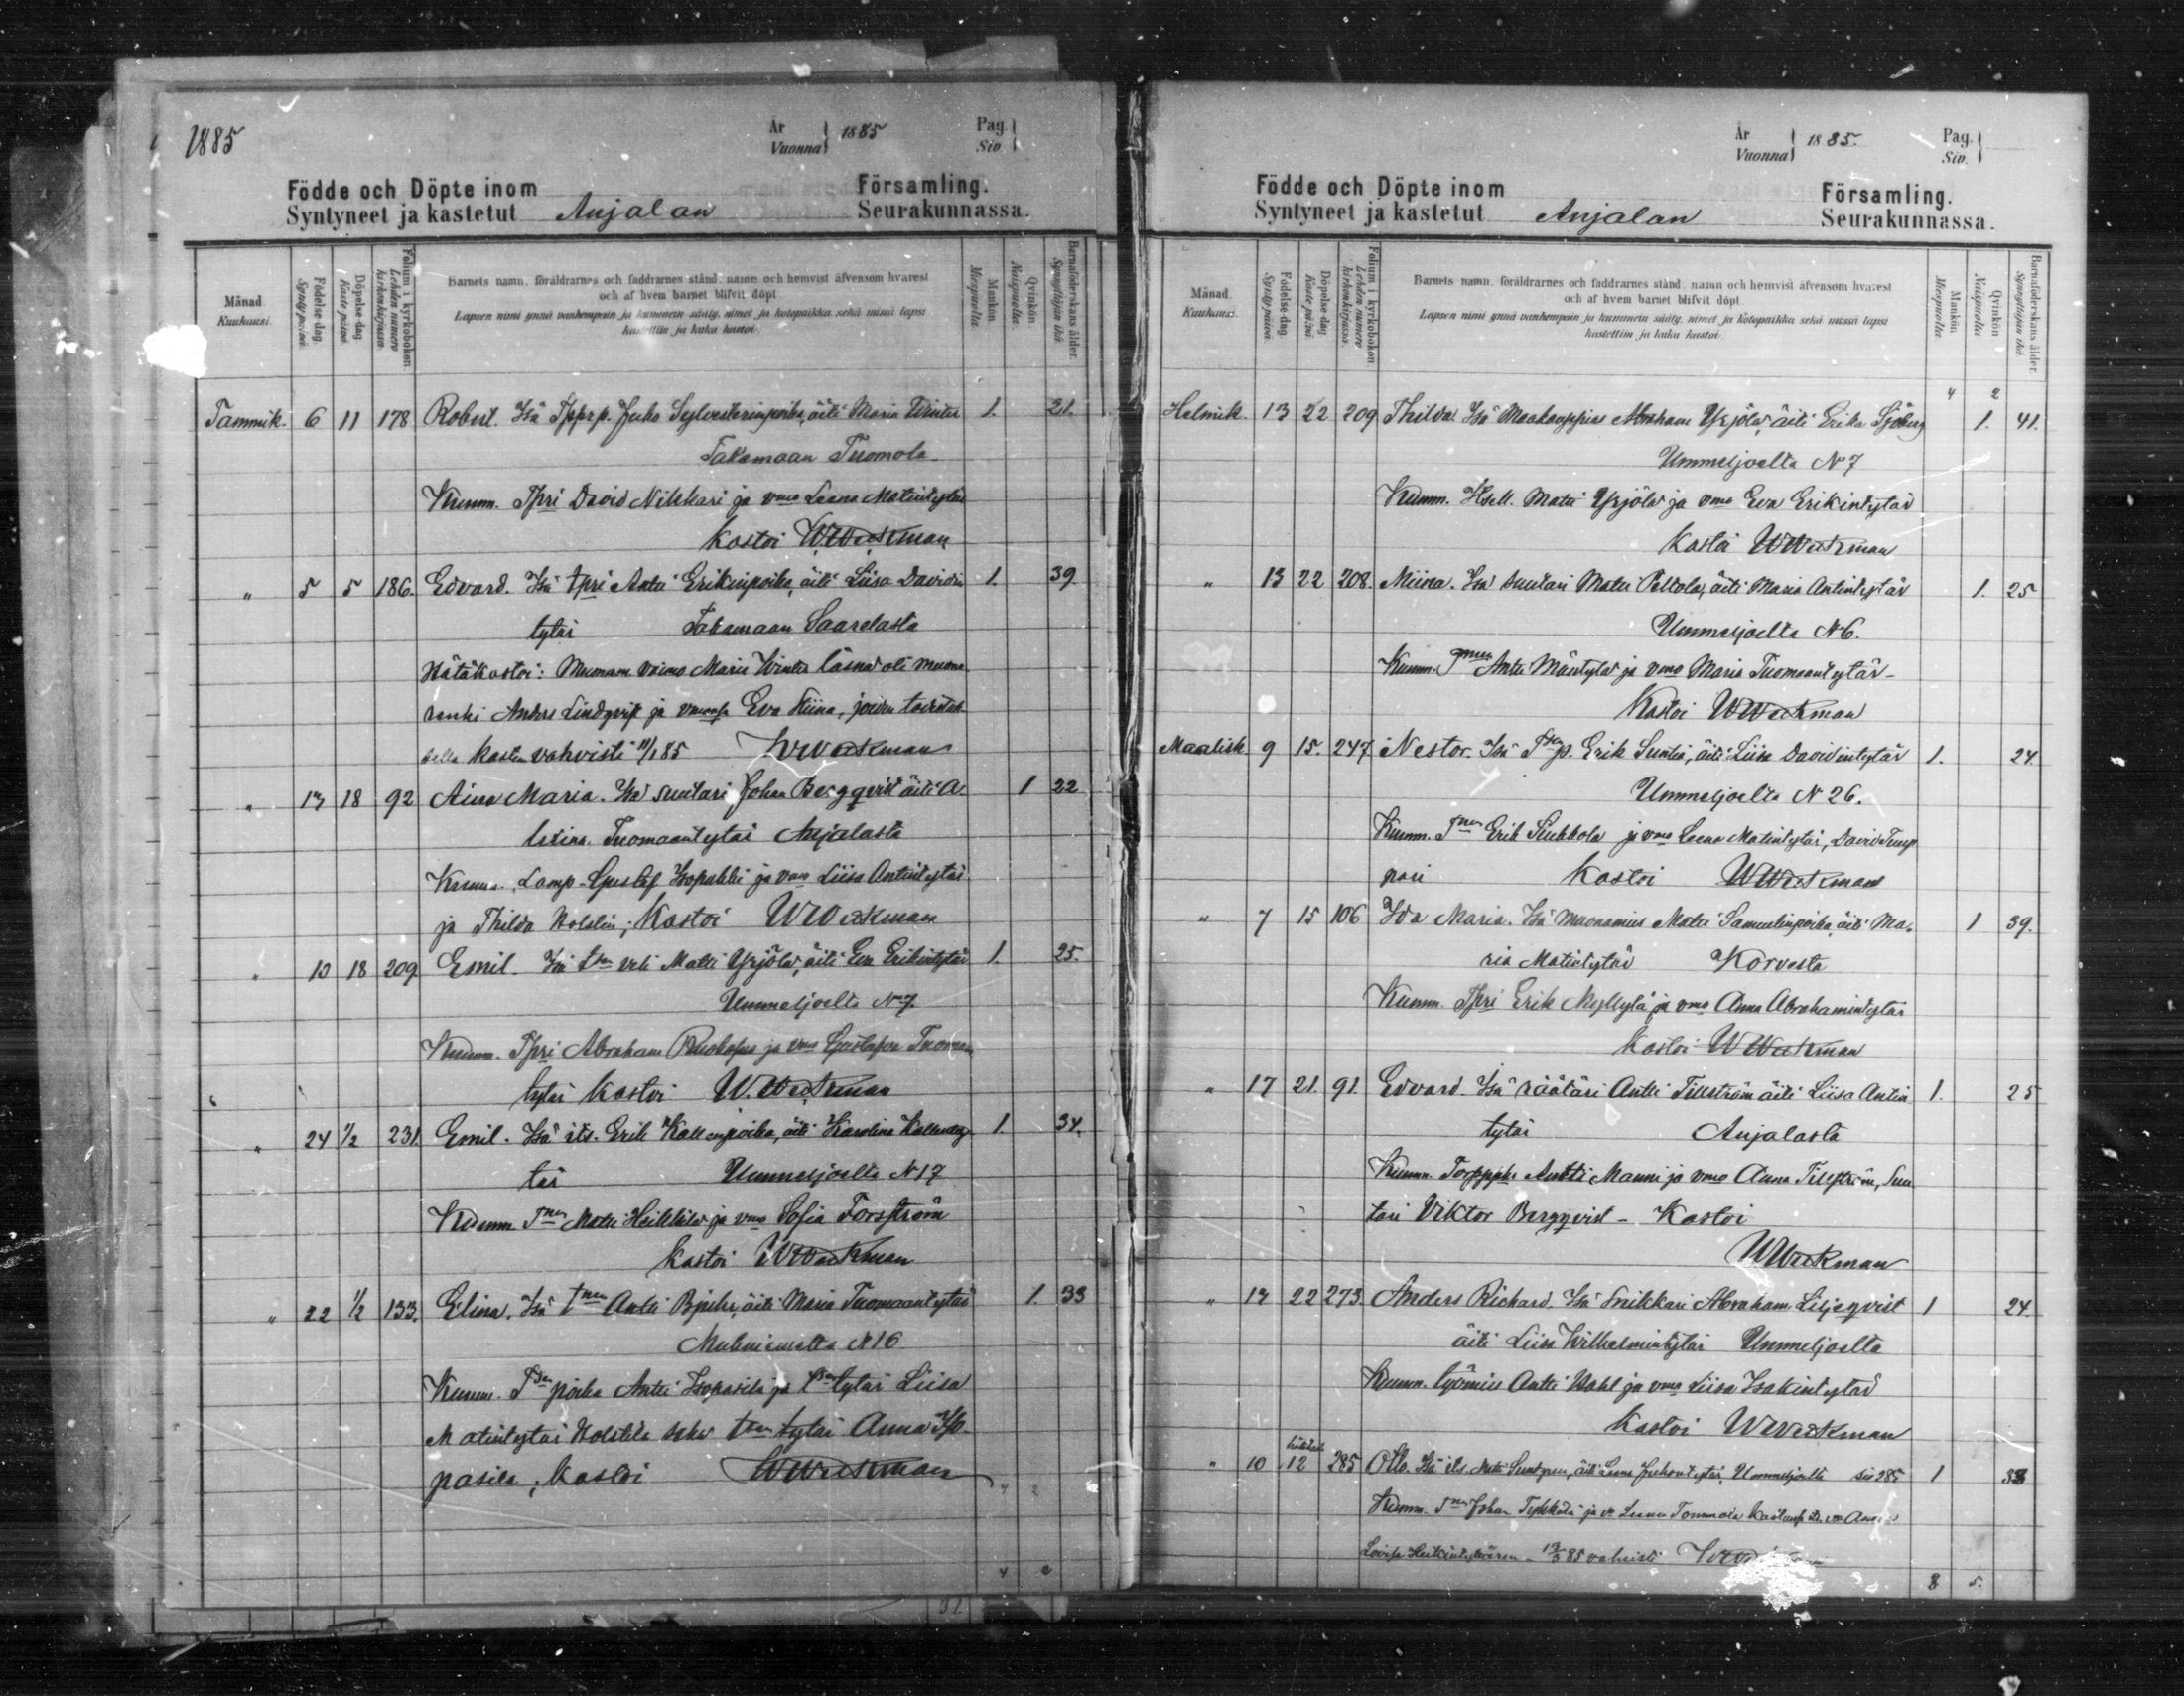 1885
År
Vuonna 1885
Pag.
Siv.
Födde och Döpte inom Församling.
Syntyneet ja kastetut Anjalan Seurakunnassa.
Månad
Kuukausi.
Födelse dag.
Syntypäivä.
Döpelse dag
Kaste päivä
Folium i kyrkoboken
Lehden numero kirkonkirjassa
Barnets namn, föräldrarnes och faddrarnes stånd, namn och hemvist äfvensom hvarest
och af hvem barnet blifvit döpt
Lapsen nimi ynnä vanhempain ja kummein sääty, nimet ja kotopaikka sekä missä lapsi
kastettiin ja kuka kastoi.
Mankön
Miespuolia
Qvinkön
Naispuolia
Barnaföderskans ålder.
Synnyttäjän ikä
Tammik. 6 11 178 Robert. Isä Juho Sylvesterinpoika, äiti Maria Winter 1. 21.
Takamaan Tuomola
Kumm. Tpri David Nikkari ja vmo Leena Matintytär
Kastoi WWeckman
" 5 5 186. Edvard. Isä tpri Antti Erikinpoika, äiti Liisa Davidin 1. 39.
tytär Takamaan Saarelasta
Hätäkastoi: Muonam. vaimo Maria Winter läsnä oli muona
renki Anders Lindqvist ja Eva Stiina, joiden
kasteen vahvisti 11/1 85 WWeckman
" 13 18 92 Aina Maria. Isä suutari Johan Bergqvist äiti A. 1 22
Tuomaantytär Anjalasta
Gustaf Isopahki ja vmo Liisa Antintytär
ja Thilda Holstin; Kastoi WWeckman
" 10 18 209 Emil. Isä veli Matti Yrjölä, äiti Eva Erikintytär 1. 25.
Ummeljoelta N 7.
Kumm. Tpri Abraham ja vmo Gustafva Tuoman
tytär Kastoi W.Weckman
" 24 1/2 231. Emil. Isä its. Erik Kallenpoika, äiti Karolina 1. 34.
tär Ummeljoelta N 17
Kumm. Matti Heikkilä ja vmo Sofia Forsström
Kastoi WWeckman
" 22 1/2 133. Elina. Isä Antti äiti Maria Tuomaantytär 1. 33
N 16
Kumm. poika Antti Isopasila ja tytär Liisa
Matintytär Holstila sekä tytär Anna Iso-
pasila; Kastoi WWeckman
4 2
År
Vuonna 1885.
Pag.
Siv.
Födde och Döpte inom Församling.
Syntyneet ja kastetut Anjalan Seurakunnassa.
Månad
Kuukausi.
Födelse dag.
Syntypäivä.
Döpelse dag
Kaste päivä
Folium i kyrkoboken
Lehden numero kirkonkirjassa
Barnets namn, föräldrarnes och faddrarnes stånd, namn och hemvist äfvensom hvarest
och af hvem barnet blifvit döpt
Lapsen nimi ynnä vanhempain ja kummein sääty, nimet ja kotopaikka sekä missä lapsi
kastettiin ja kuka kastoi.
Mankön
Miespuolia
Qvinkön
Naispuolia
Barnaföderskans ålder.
Synnyttäjän ikä
4 2
Helmik. 13 22 209 Thilda. Isä Maakauppias Abraham Yrjölä, äiti Erika Sjöberg 1. 41.
Ummeljoelta N 7
Kumm. Matti Yrjölä ja vmo Eva Erikintytär
Kastoi WWeckman
" 13 22 208. Miina. Isä suutari Matti Peltola, äiti Maria Antintytär 1. 25
Ummeljoelta N 6.
Kumm. Antti Mäntylä ja vmo Maria Tuomaantytär
Kastoi WWeckman
Maalisk 9 15. 247 Nestor. Isä Erik Suntia, äiti Liisa Davidintytär 1. 24.
Ummeljoelta N 26.
Kumm. Erik Sinkkola ja vmo Leena Matintytär, David
Kastoi WWeckman
" 7 15 106 Ida Maria. Isä muonamies Matti Samuelinpoika, äiti Ma- 1 39.
ria Matintytär Korvesta
Kumm. Tpri Erik Myllylä ja vmo Anna Abrahamintytär
Kastoi WWeckman
" 17 21. 91. Edvard. Isä räätäri Antti Tillström äiti Liisa Antin 1. 25
tytär Anjalasta
Kumm. Antti Manni ja vmo Anna Tillström, Suu
tari Viktor Bergqvist - Kastoi
WWeckman
" 14 22 273. Anders Richard. Isä Snikkari Abraham Liljeqvist 1 24.
äiti Liisa Wilhelmintytär Ummeljoelta
Kumm. työmies Antti Wahl ja vmo Liisa Isakintytär
Kastoi WWeckman
" 10 12 285 Otto. Isä its. Matti äiti Leena Juhontytär, Ummeljoelta siv 285 1 38
Kumm. Johan ja Leena
Lovisa vahvisti
8 5.